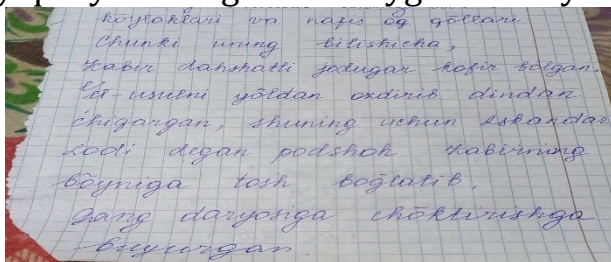 koylaklari va nafis og qollari
Chunki uning bilishicha,
Kabir dahshatli jodugar kofir bolgan.
El-usulni yõldan ozdirib dindan
chigargan, shuning uchun Eskandar
Lodi degan podshoh Kabirning
bõyniga tosh bogʻlatib,
Gang daryosiga chõktirishga
buyurgan.